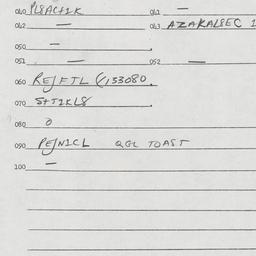 040 PLSACHIK 041 —
042 — 043 AZAKALSEC 1
050 —
051 — 052 —
060 REJFTL (/153080.
070 S+TIKLS
080 0
090 PEJNICL QGL TOAST
100 —